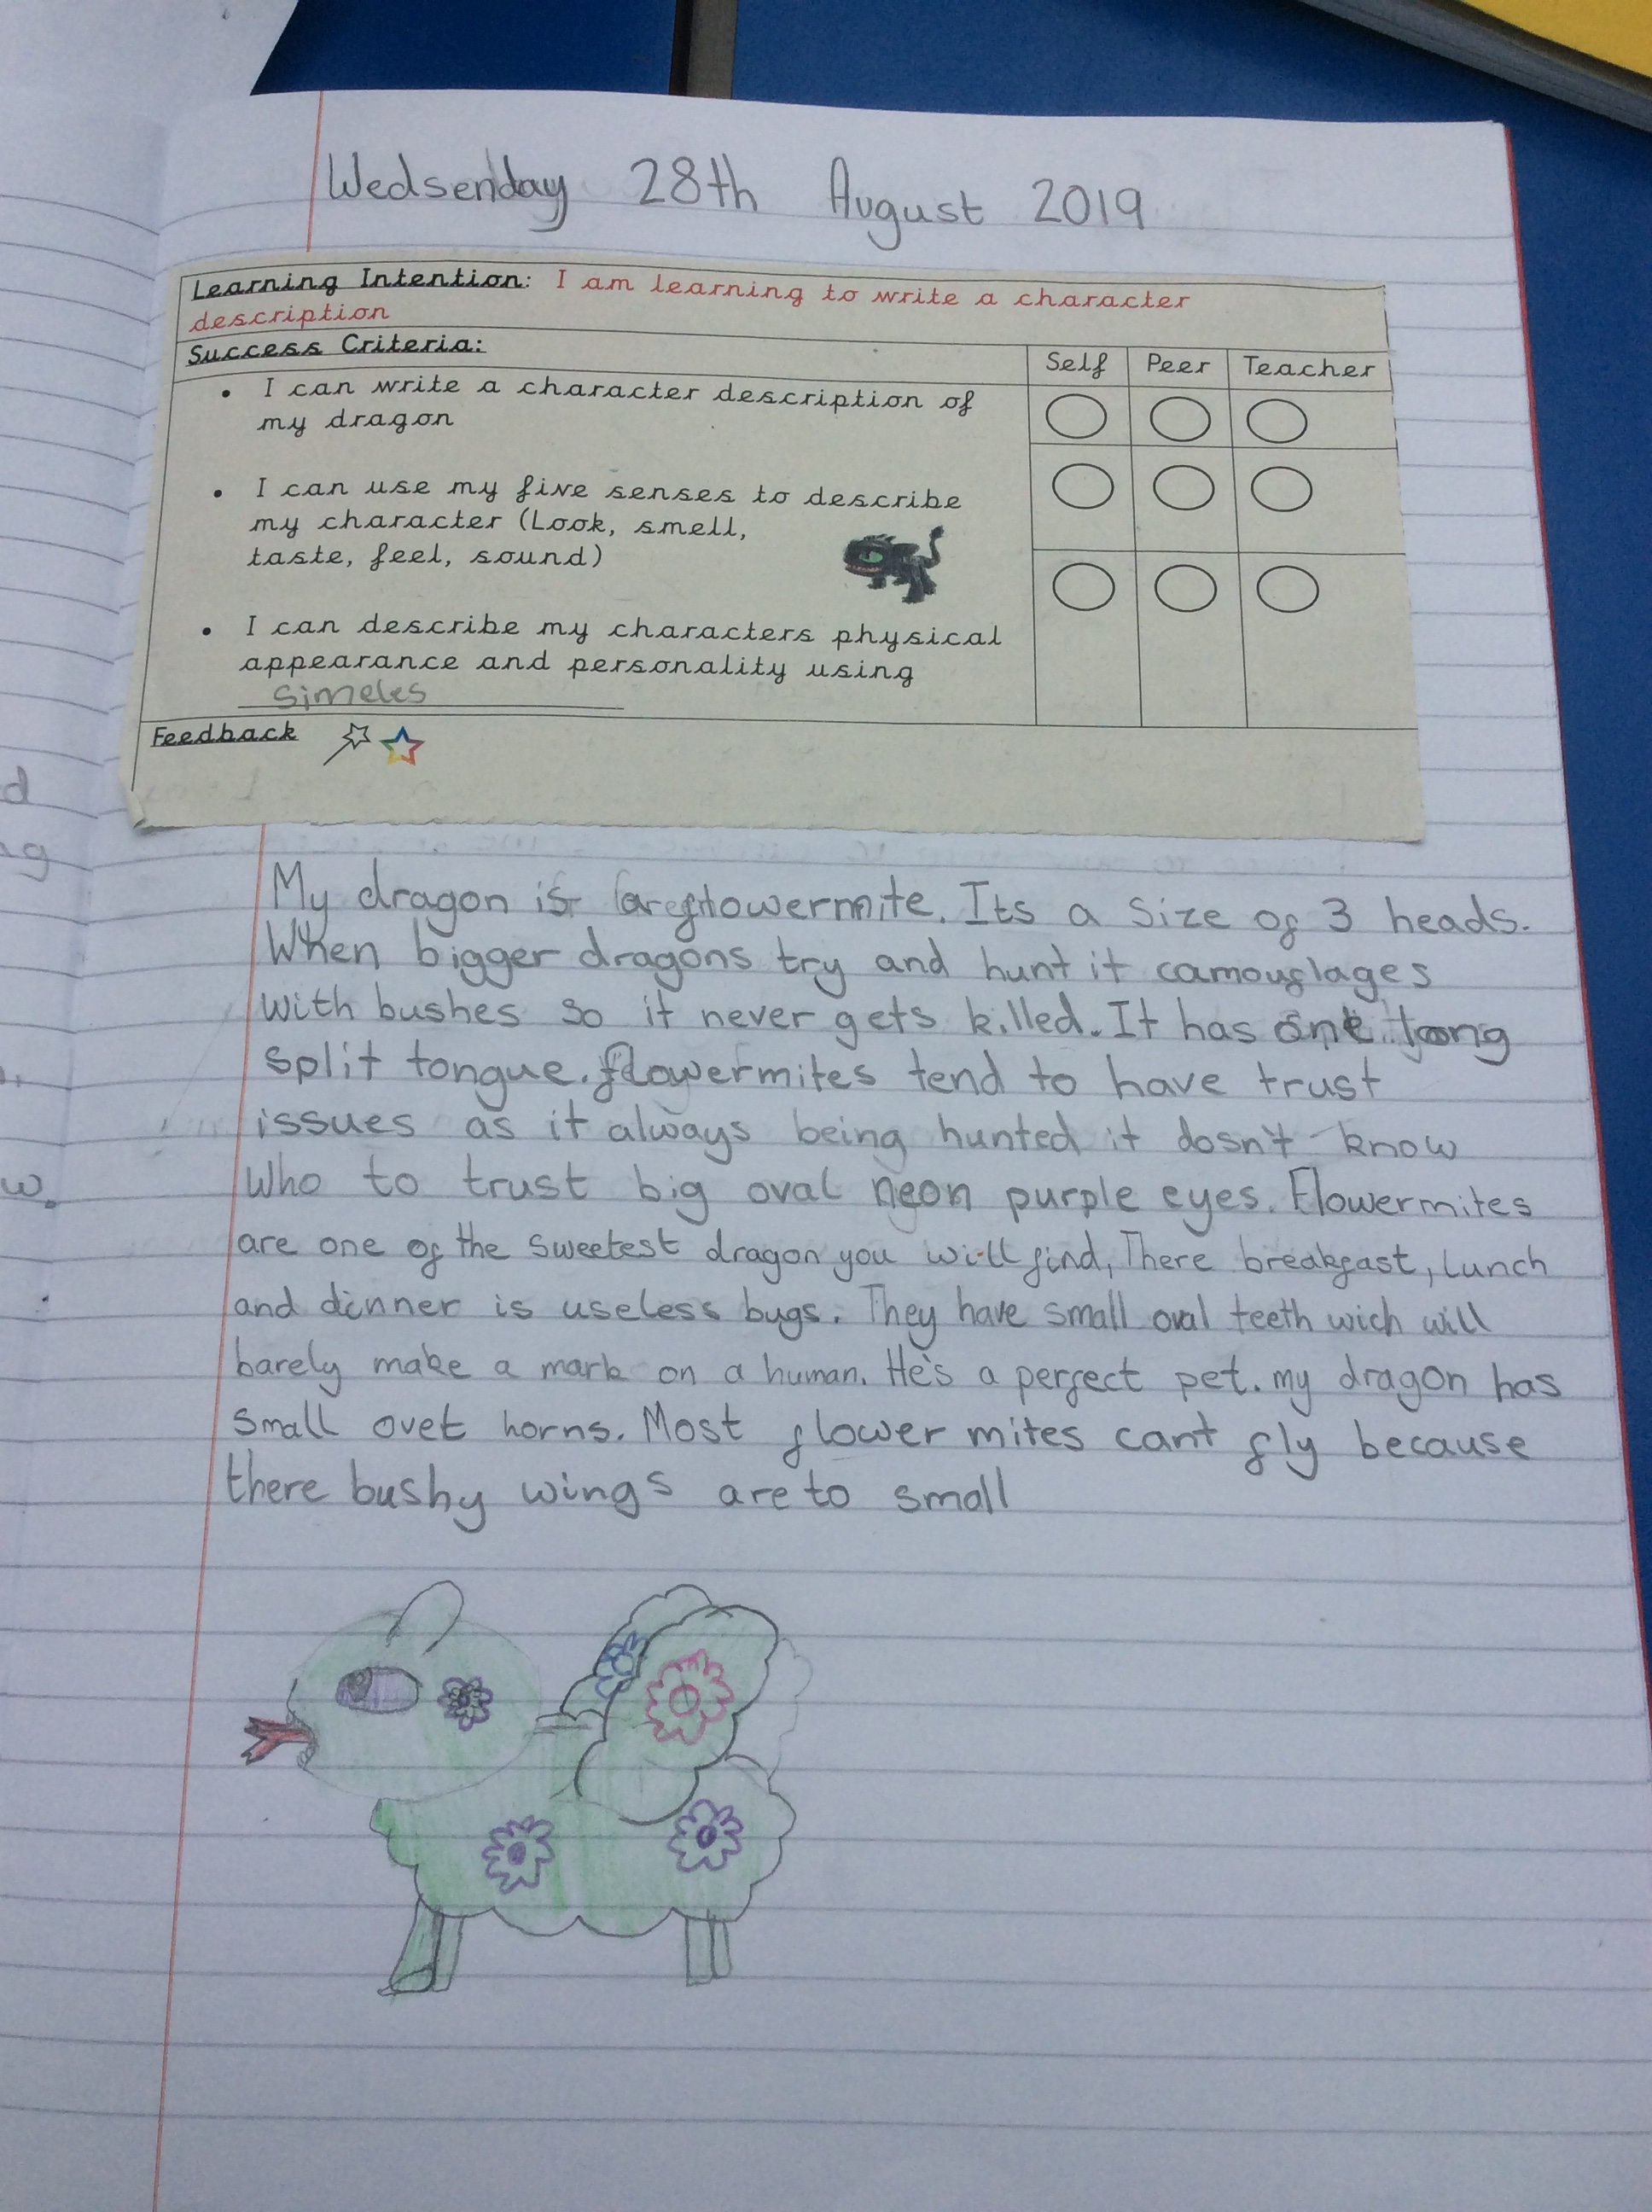 Wedsenday 28th August 2019
Learning Intention: I am learning to write a character
description
Success Criteria:
Self Peer Teacher
• I can write a character description of
my dragon
• I can use my five senses to describe
my character (Look, smell,
taste, feel, sound)
• I can describe my characters physical
appearance and personality using
simeles
Feedback
d
g
w.
My dragon is flowermite. Its a size of 3 heads.
When bigger dragons try and hunt it camouflages
with bushes so it never gets killed. It has one long
split tongue. flowermites tend to have trust
issues as it always being hunted it dosn't know
who to trust big oval neon purple eyes. Flowermites
are one of the sweetest dragon you will find, There breakfast, lunch
and dinner is useless bugs. They have small oval teeth wich will
barely make a mark on a human. He's a perfect pet. my dragon has
small ovel horns. Most flower mites cant fly because
there bushy wings are to small